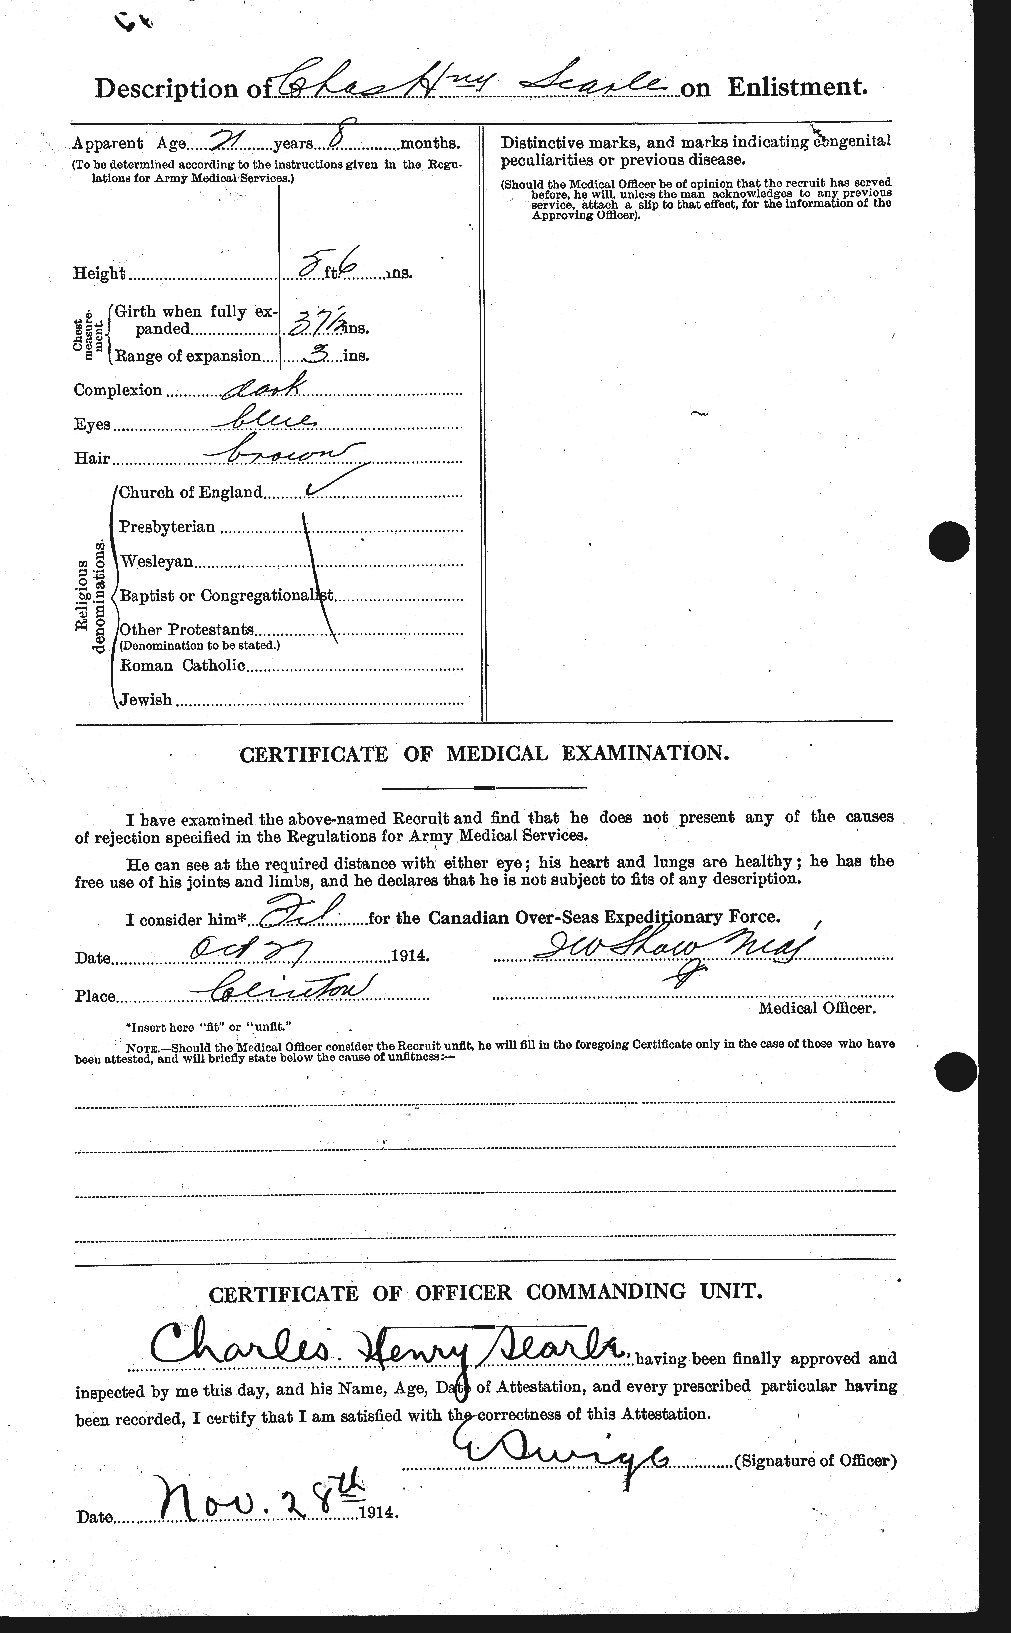 Description of Chas Hny Searle on Enlistment.
Apparent Age 21 years 8 months.
(To be determined according to the instructions given in the Regu-
lations for Army Medical Services.)
Height 5 ft 6 ins.
Chest measure-ment.
Girth when fully ex-
panded 37½ ins.
Range of expansion 3 ins.
Complexion dark
Eyes blue
Hair brown
Religious denominations.
Church of England ✓
Presbyterian
Wesleyan
Baptist or Congregationalist
Other Protestants
(Denomination to be stated.)
Roman Catholic
Jewish
Distinctive marks, and marks indicating congenital
peculiarities or previous disease.
(Should the Medical Officer be of opinion that the recruit has served
before, he will, unless the man acknowledges to any previous
service, attach a slip to that effect, for the information of the
Approving Officer).
CERTIFICATE OF MEDICAL EXAMINATION.
I have examined the above-named Recruit and find that he does not present any of the causes
of rejection specified in the Regulations for Army Medical Services.
He can see at the required distance with either eye; his heart and lungs are healthy; he has the
free use of his joints and limbs, and he declares that he is not subject to fits of any description.
I consider him* Fit for the Canadian Over-Seas Expeditionary Force.
Date Oct 27 1914. Shaw
Place Clinton
Medical Officer.
*Insert here "fit" or "unfit."
NOTE.—Should the Medical Officer consider the Recruit unfit, he will fill in the foregoing Certificate only in the case of those who have
been attested, and will briefly state below the cause of unfitness:—
CERTIFICATE OF OFFICER COMMANDING UNIT.
Charles Henry Searle having been finally approved and
inspected by me this day, and his Name, Age, Date of Attestation, and every prescribed particular having
been recorded, I certify that I am satisfied with the correctness of this Attestation.
(Signature of Officer)
Date Nov. 28th 1914.